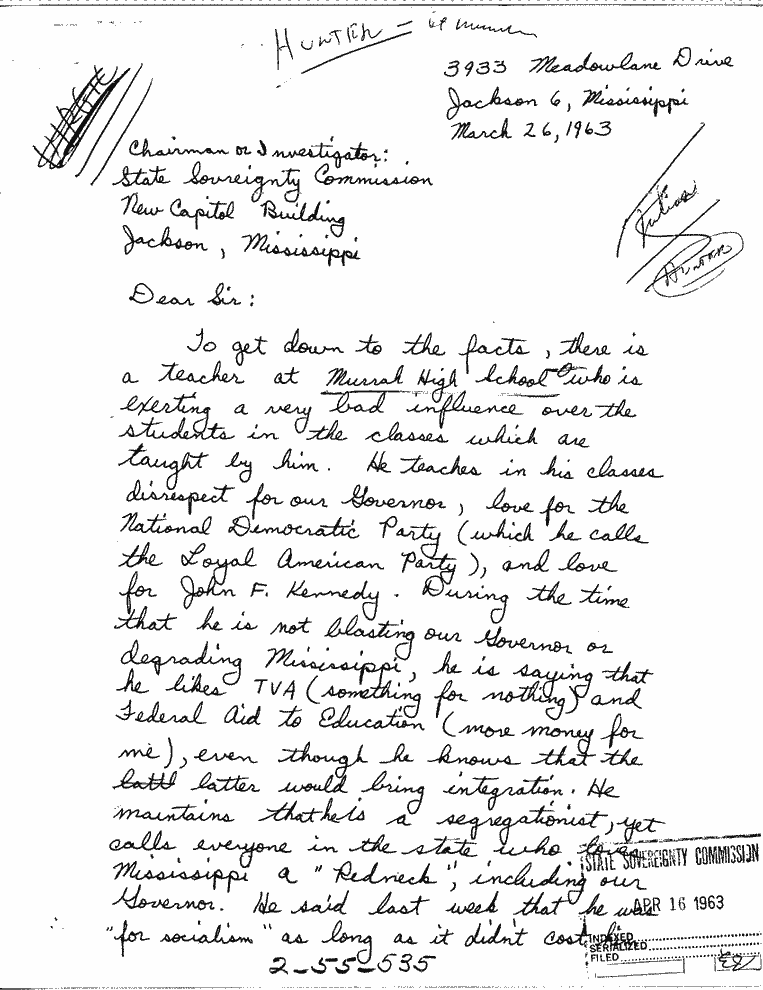 HUNTER –
3933 Meadowlane Drive
Jackson 6, Mississippi
March 26, 1963
Chairman or Investigator:
State Sovreignty Commission
New Capitol Building
Jackson, Mississippi
HUNTER
Dear Sir:
To get down to the facts, there is
a teacher at Murrah High School who is
exerting a very bad influence over the
students in the classes which are
taught by him. He teaches in his classes
disrespect for our Governor, love for the
National Democratic Party (which he calls
the Loyal American Party), and love
for John F. Kennedy. During the time
that he is not blasting our Governor or
degrading Mississippi, he is saying that
he likes TVA (something for nothing) and
Federal Aid to Education (more money for
me), even though he knows that the
latter would bring integration. He
maintains that he is a segregationist, yet
calls everyone in the state who loves
Mississippi a "Redneck", including our
Governor. He said last week that he was
"for socialism" as long as it didn't cost
STATE SOVEREIGNTY COMMISSION
APR 16 1963
INDEXED
SERIALIZED
FILED
2-55-535